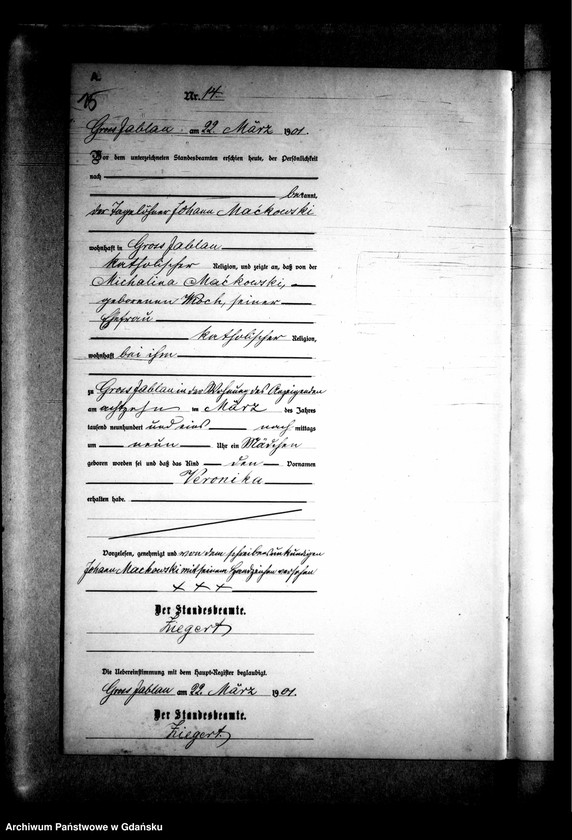 A.
15
Nr. 14.
Gross Jablau am 22 März 1901.
Vor dem unterzeichneten Standesbeamten erschien heute, der Persönlichkeit
nach
bekannt,
der Tagelöhner Johann Maćkowski
wohnhaft in Gross Jablau
katholischer Religion, und zeigte an, daß von der
Michalina Maćkowski,
geborenen Woch, seiner
Ehefrau
katholischer Religion,
wohnhaft bei ihm
zu Gross Jablau in der Wohnung des Anzeigenden
am achtzehn ten März des Jahres
tausend neunhundert und eins nach mittags
um neun Uhr ein Mädchen
geboren worden sei und daß das Kind den Vornamen
Veronika
erhalten habe.
Vorgelesen, genehmigt und von dem schreibensunkundigen
Johann Mackowski mit seinem Handzeichen versehen
+ + +
Der Standesbeamte.
Ziegert
Die Uebereinstimmung mit dem Haupt-Register beglaubigt.
Gross Jablau am 22. März 1901.
Der Standesbeamte.
Ziegert
Archiwum Państwowe w Gdańsku